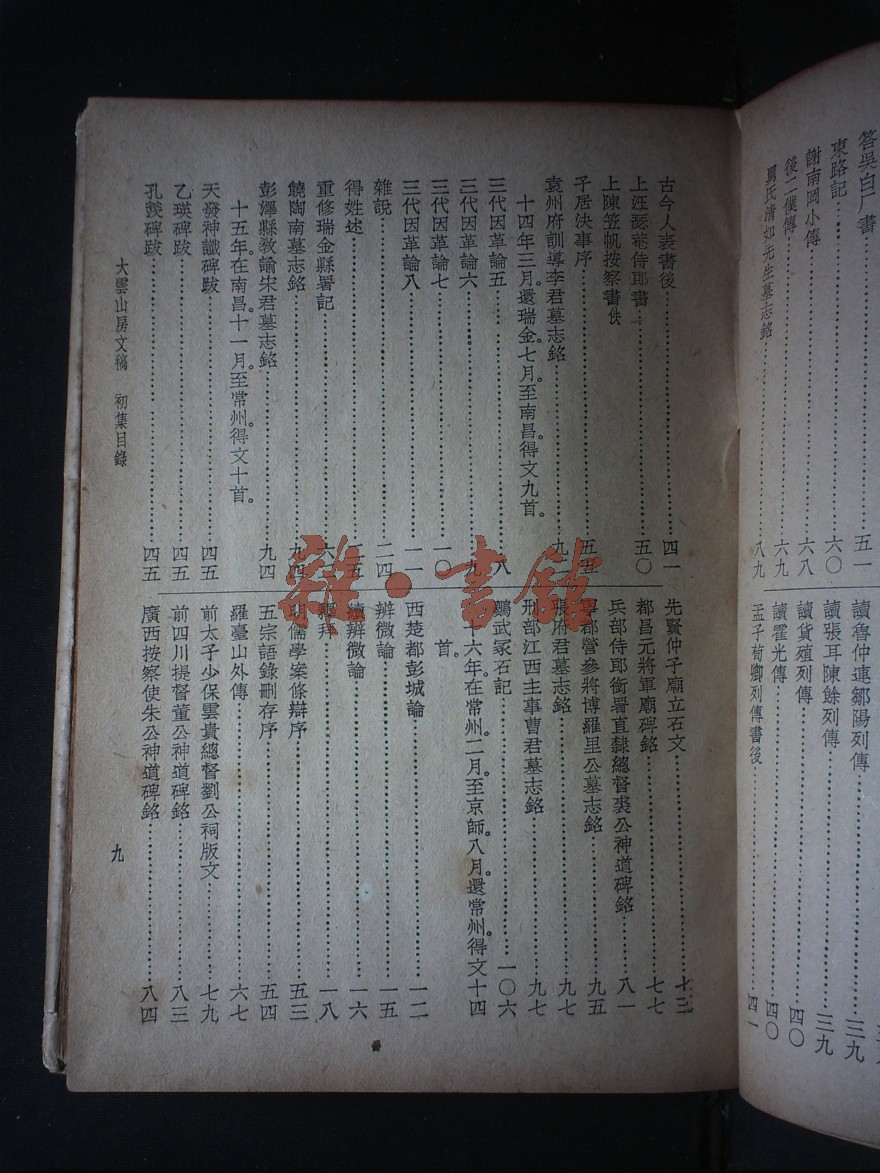 答吳白厂書……五一
東路記……六〇
謝南岡小傳……六八
後二僕傳……六九
舅氏清如先生墓志銘……八九
讀魯仲連鄒陽列傳……三九
讀張耳陳餘列傳……三九
讀貨殖列傳……四〇
讀霍光傳……四〇
孟子荀卿列傳書後……四一
古今人表書後……四一
上汪瑟菴侍郎書……五〇
上陳笠帆按察書佚
子居決事序……五五
袁州府訓導李君墓志銘……九
十四年三月。還瑞金。七月。至南昌。得文九首。
三代因革論五……八
三代因革論六……九
三代因革論七……一〇
三代因革論八……一一
雜說……二四
得姓述……二五
重修瑞金縣署記……六
饒陶南墓志銘……九四
彭澤縣教諭宋君墓志銘……九四
十五年。在南昌。十一月。至常州。得文十首。
天發神讖碑跋……四五
乙瑛碑跋……四五
孔羨碑跋……四五
先賢仲子廟立石文……七三
都昌元將軍廟碑銘……七七
兵部侍郎銜署直隸總督裘公神道碑銘……八一
寧都營參將博羅里公墓志銘……九五
張府君墓志銘……九七
刑部江西主事曹君墓志銘……九七
鵬武冢石記……一〇六
十六年。在常州。二月。至京師。八月。還常州。得文十四
首。
西楚都彭城論……一二
辨微論……一五
續辨微論……一六
釋拜……一八
明儒學案條辯序……五三
五宗語錄刪存序……五四
羅臺山外傳……六七
前太子少保雲貴總督劉公祠版文……七九
前四川提督董公神道碑銘……八三
廣西按察使朱公神道碑銘……八四
大雲山房文稿 初集目錄
九
雜·書館